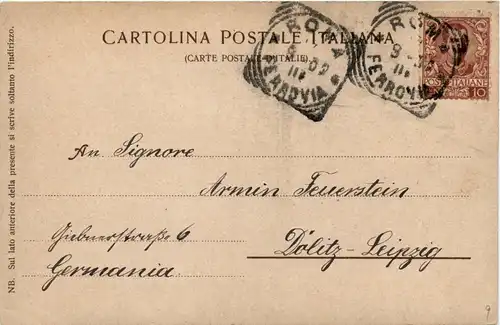 CARTOLINA POSTALE ITALIANA
(CARTE POSTALE D'ITALIE)
ROMA
FERROVIA
ROMA
FERROVIA
POSTE ITALIANE
10
NB. Sul lato anteriore della presente si scrive soltanto l'indirizzo.
An Signore
Armin Feuerstein
Giebnerstraße 6
Dölitz-Leipzig
Germania.
9